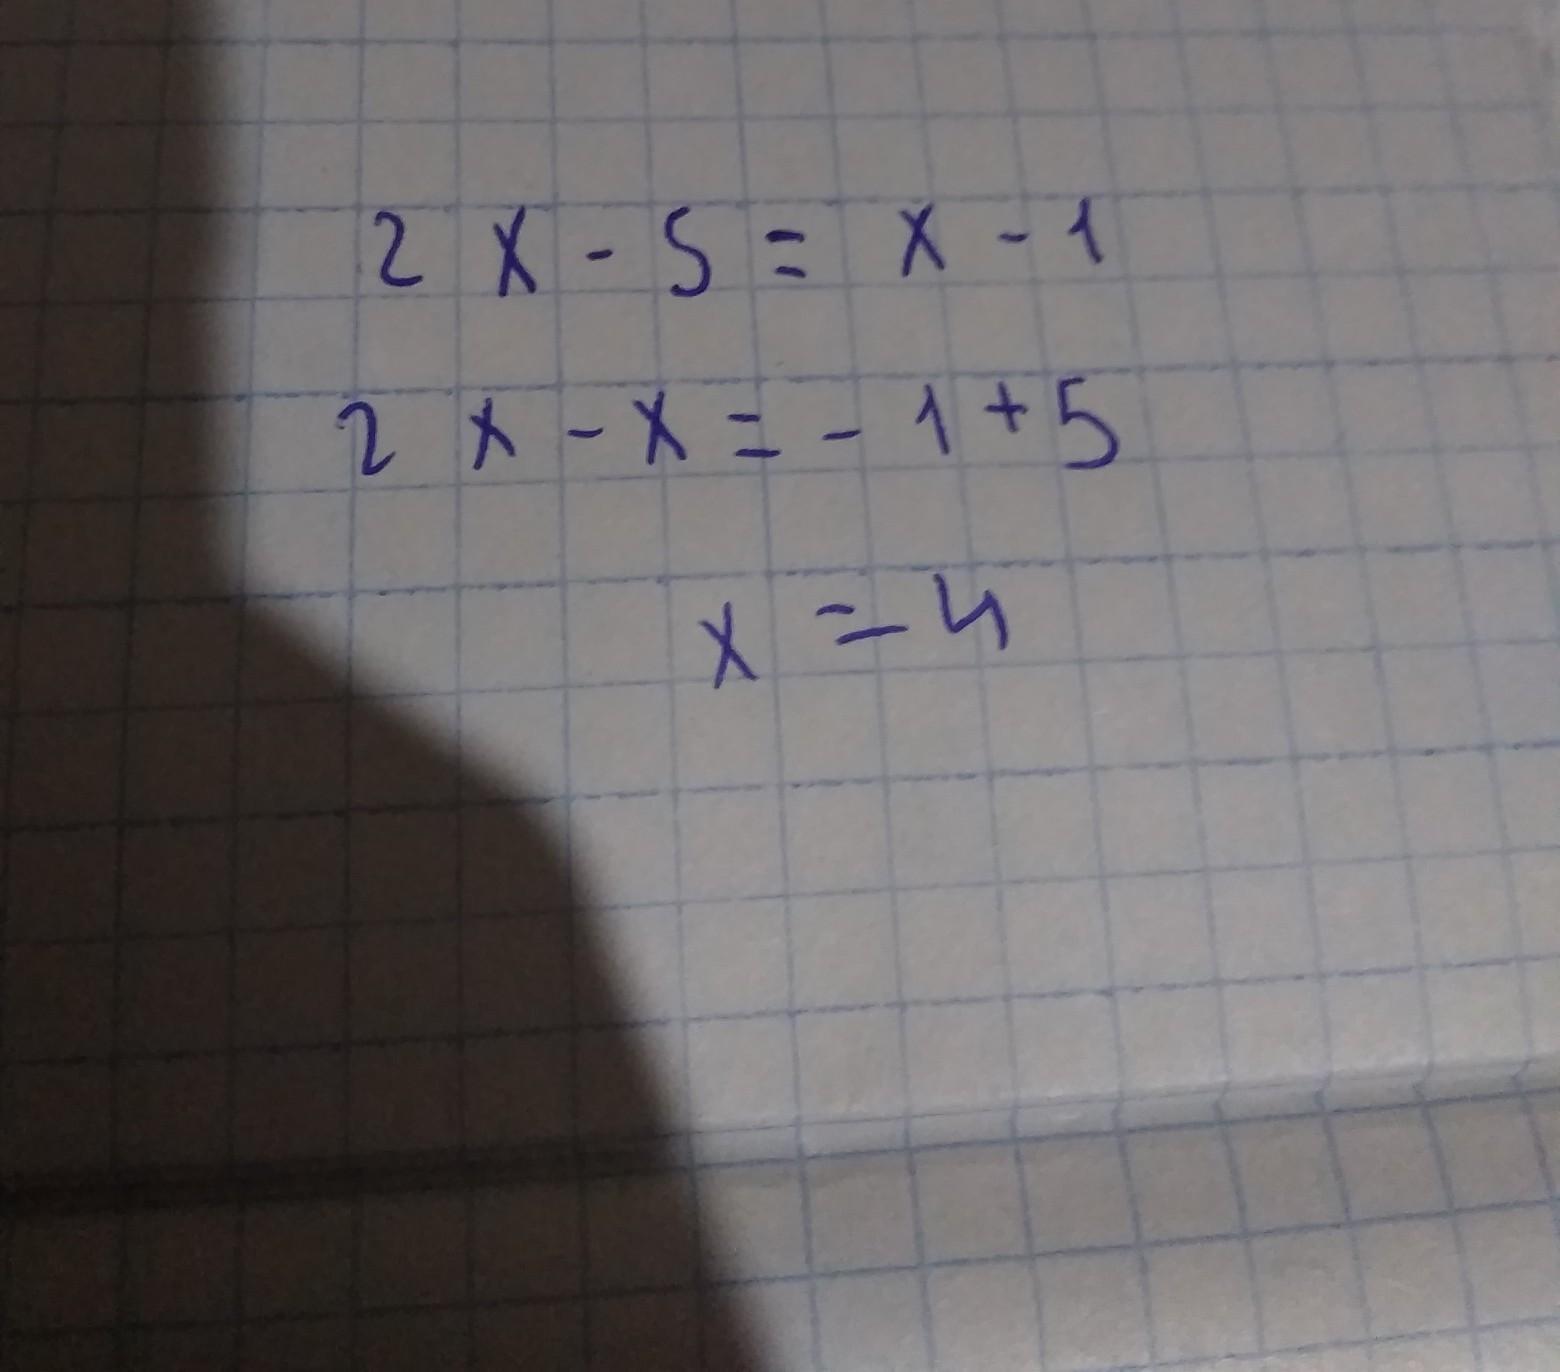 2x - 5 = x - 1
2x - x = - 1 + 5
x = 4